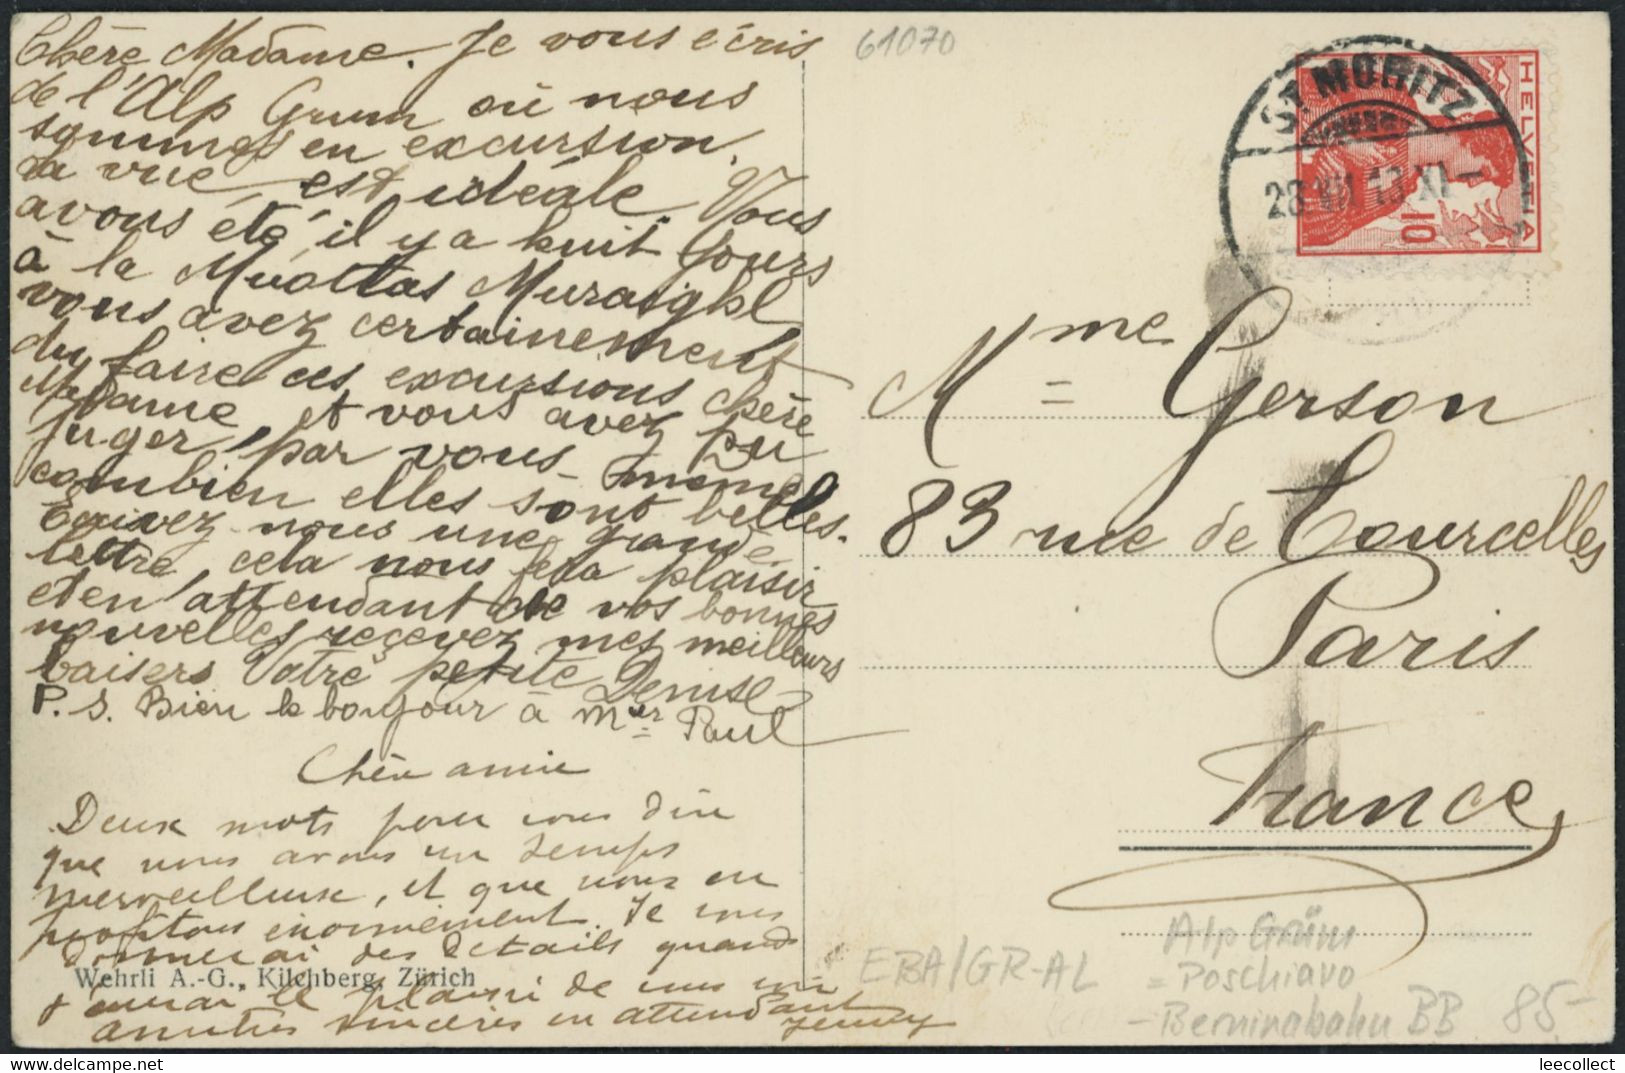 Chère Madame. Je vous écris
de l'Alp Grum où nous
sommes en excursion.
La vue est idéale. Nous
avons été, il y a huit jours
à la Muottas Muraigkl
vous avez certainement
du faire ces excursions chère
Madame, et vous avez pu
juger, par vous-même
combien elles sont belles.
Ecrivez-nous une grande
lettre, cela nous fera plaisir
et en attendant de vos bonnes
nouvelles reçevez mes meilleurs
baisers Votre petite Denise
P. S. Bien le bonjour à Mer Paul
Chère amie
Deux mots pour vous dire
que nous avons un temps
merveilleux, et que nous en
profitons énormément. Je vous
donnerai des détails quand
j'aurai le plaisir de vous voir
amitiés sincères en attendant
Jenny
Wehrli A.-G., Kilchberg, Zürich
61070
ST. MORITZ
28.VII.13.XI-
HELVETIA
10
Mme Gerson
83 rue de Courcelles
Paris
France
EBA/GR-AL
Alp Grüm
= Poschiavo
- Berninabahn BB 85-
leecollect